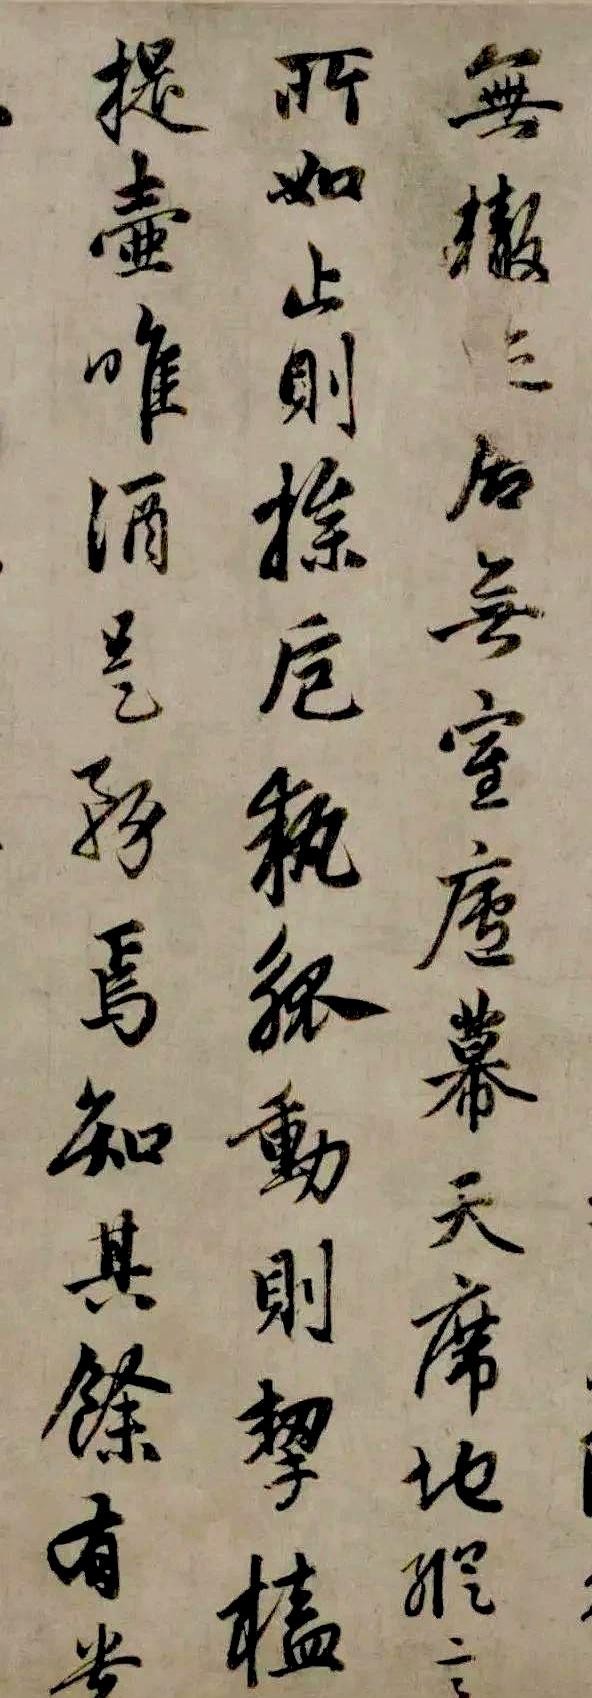 無轍居無室廬幕天席地縱意
所如止則操卮執觚動則挈榼
提壺唯酒是務焉知其餘有貴